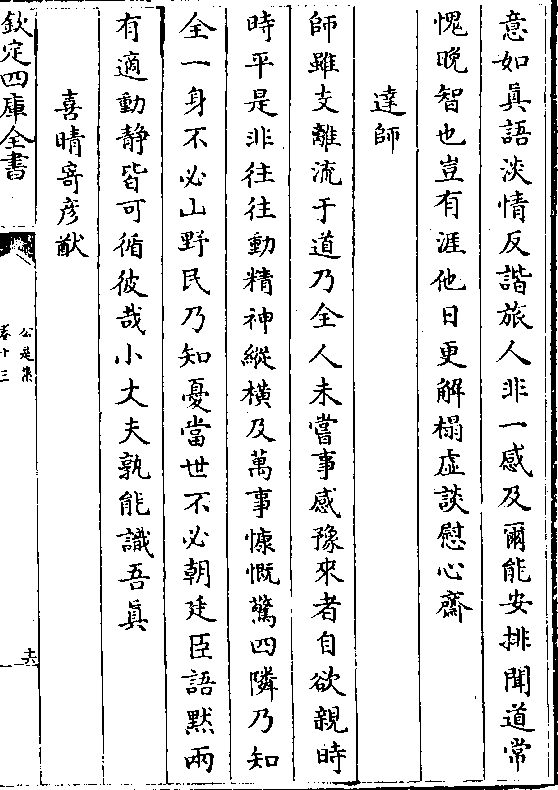 意如眞語淡情反諧旅人非一感及爾能安排聞道常
愧晩智也豈有涯他日更解榻虛談慰心齋
達師
師雖支離流于道乃全人未嘗事感豫來者自欲親時
時平是非往往動精神縱橫及萬事慷慨驚四隣乃知
全一身不必山野民乃知憂當世不必朝廷臣語黙兩
有適動靜皆可循彼哉小丈夫孰能識吾眞
喜晴寄彦猷
欽定四庫全書
公是集
卷十三
十六